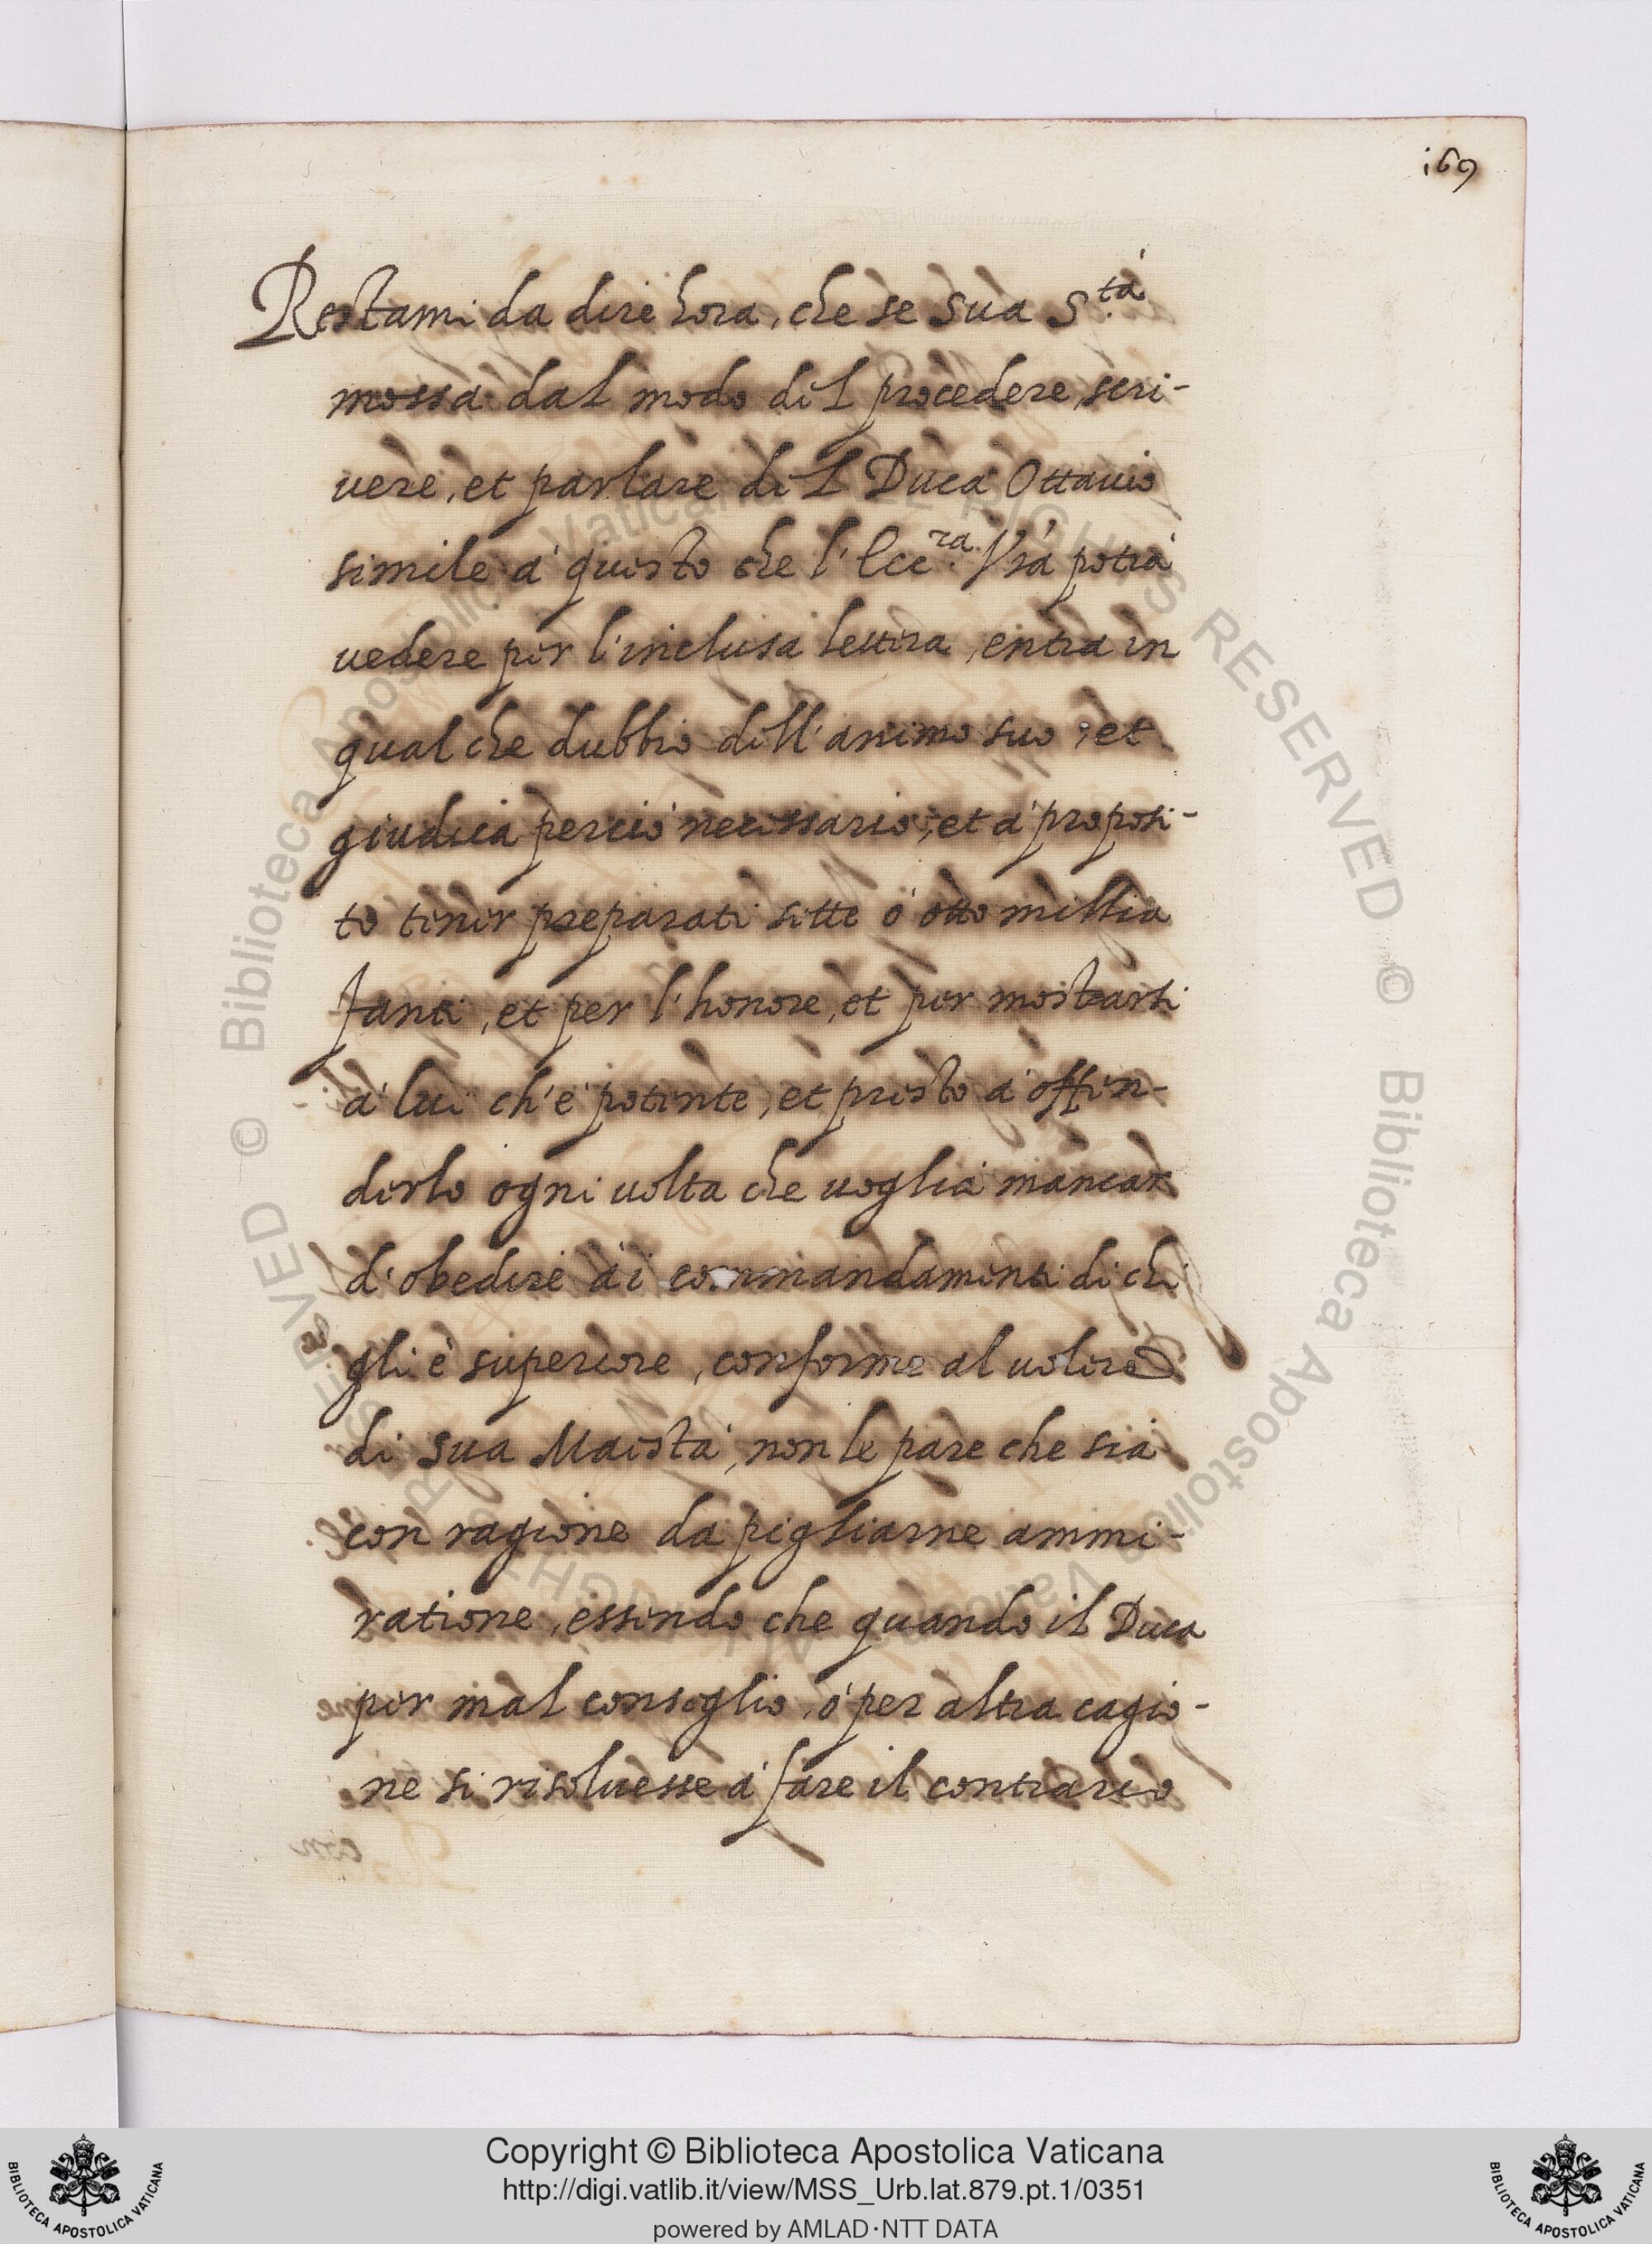 i69
Restami da dire hora, che se Sua S.tà
mossa dal modo del procedere, scri-
vere, et parlare del Duca Ottavio
simile à questo che l'Ecc.ra Vrà potrà
vedere per l'inclusa lettera, entra in
qualche dubbio dell'animo suo, et
giudica perciò necessario, et à proposi-
to tener preparati sette ò otto millia
fanti, et per l'honore, et per mostrarsi
à lui ch'è potente, et presto à offen-
derlo ogni uolta che uoglia mancar
d'obedire ài commandamenti di chi
gli è superiore, conforme al uolere
di sua Maestà, non le pare che sia
con ragione da pigliarne ammi-
ratione, essendo che quando il Duca
per mal conseglio, ò per altra cagio-
ne si risoluesse à fare il contrario
© Biblioteca Apostolica Vaticana ALL RIGHTS RESERVED © Biblioteca Apostolica Vaticana ALL RIGHTS RESERVED
BIBLIOTECA APOSTOLICA VATICANA
Copyright © Biblioteca Apostolica Vaticana
http://digi.vatlib.it/view/MSS_Urb.lat.879.pt.1/0351
powered by AMLAD·NTT DATA
BIBLIOTECA APOSTOLICA VATICANA